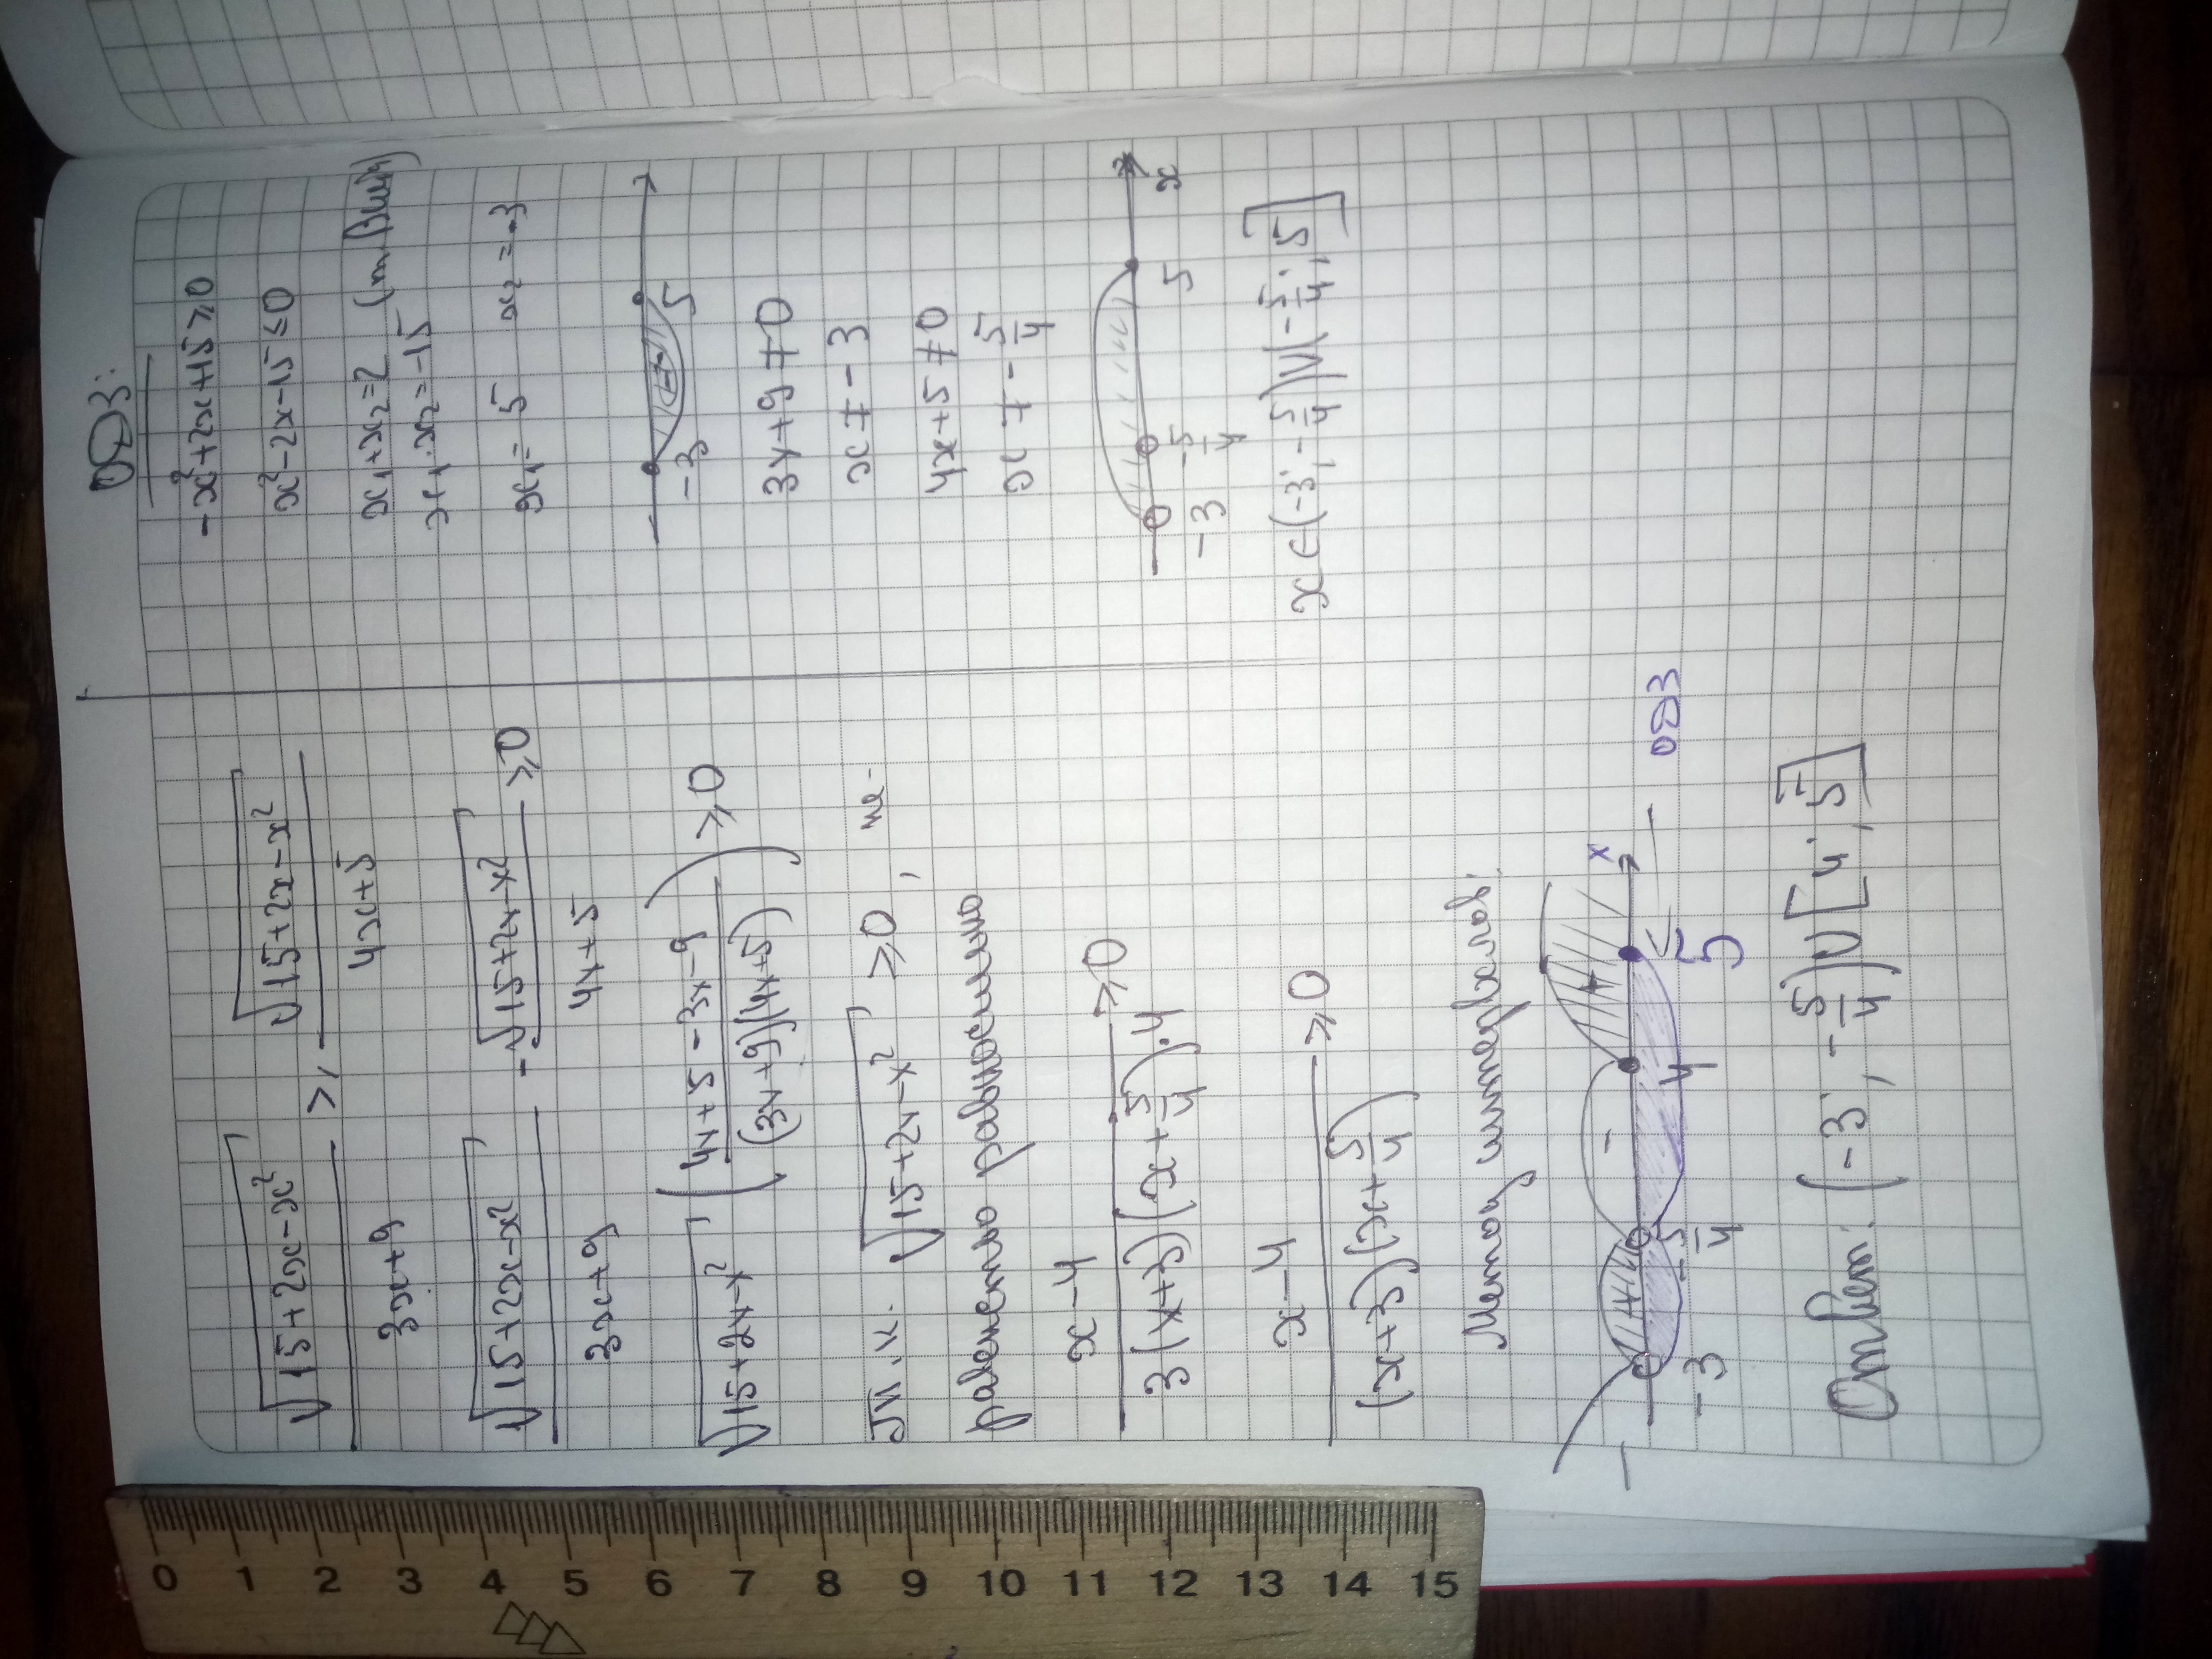 √(15+2x−x²)/(3x+9) ≥ √(15+2x−x²)/(4x+5)
√(15+2x−x²)/(3x+9) − √(15+2x−x²)/(4x+5) ≥0
√(15+2x−x²) ((4x+5−3x−9)/((3x+9)(4x+5))) ≥0
Т.к. √(15+2x−x²) ≥0, не-
равенство равносильно
(x−4)/(3(x+3)(x+5/4)·4) ≥0
(x−4)/((x+3)(x+5/4)) ≥0
Метод интервалов:
− + − + x
−3 −5/4 4 5 — ОДЗ
Ответ: (−3; −5/4)∪[4; 5]
ОДЗ:
−x²+2x+15≥0
x²−2x−15≤0
x₁+x₂=2 (т. Виета)
x₁·x₂=−15
x₁=5 x₂=−3
−3 5
3x+9≠0
x≠−3
4x+5≠0
x≠−5/4
−3 −5/4 5 x
x∈(−3; −5/4)∪(−5/4; 5]
0 1 2 3 4 5 6 7 8 9 10 11 12 13 14 15